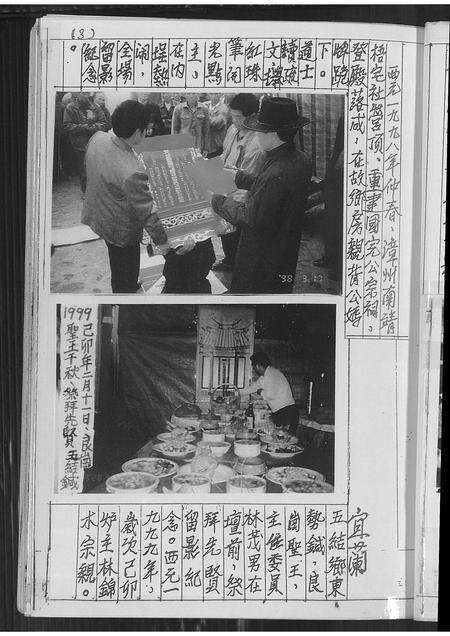 (3)
西元一九九八年仲春,漳州南靖
梧宅社營頂、重建國完公宗祠,
登殿落成,在故鄉房親背公媽
牌跪
下。
道士
讀疏
文畢
紅珠
筆河
光點
主。
在內
埕熱
鬧,
全場
留影
紀念
。
'98 3.17
1999己卯年二月十一日,良崗
聖王千秋,祭拜先賢 五結鍼
宜蘭
五結鄉東
勢鍼,良
崗聖王,
主任委員
林茂男在
壇前,祭
拜先賢
留影紀
念。西元一
九九九年,
歲次己卯
爐主林錦
木宗親。